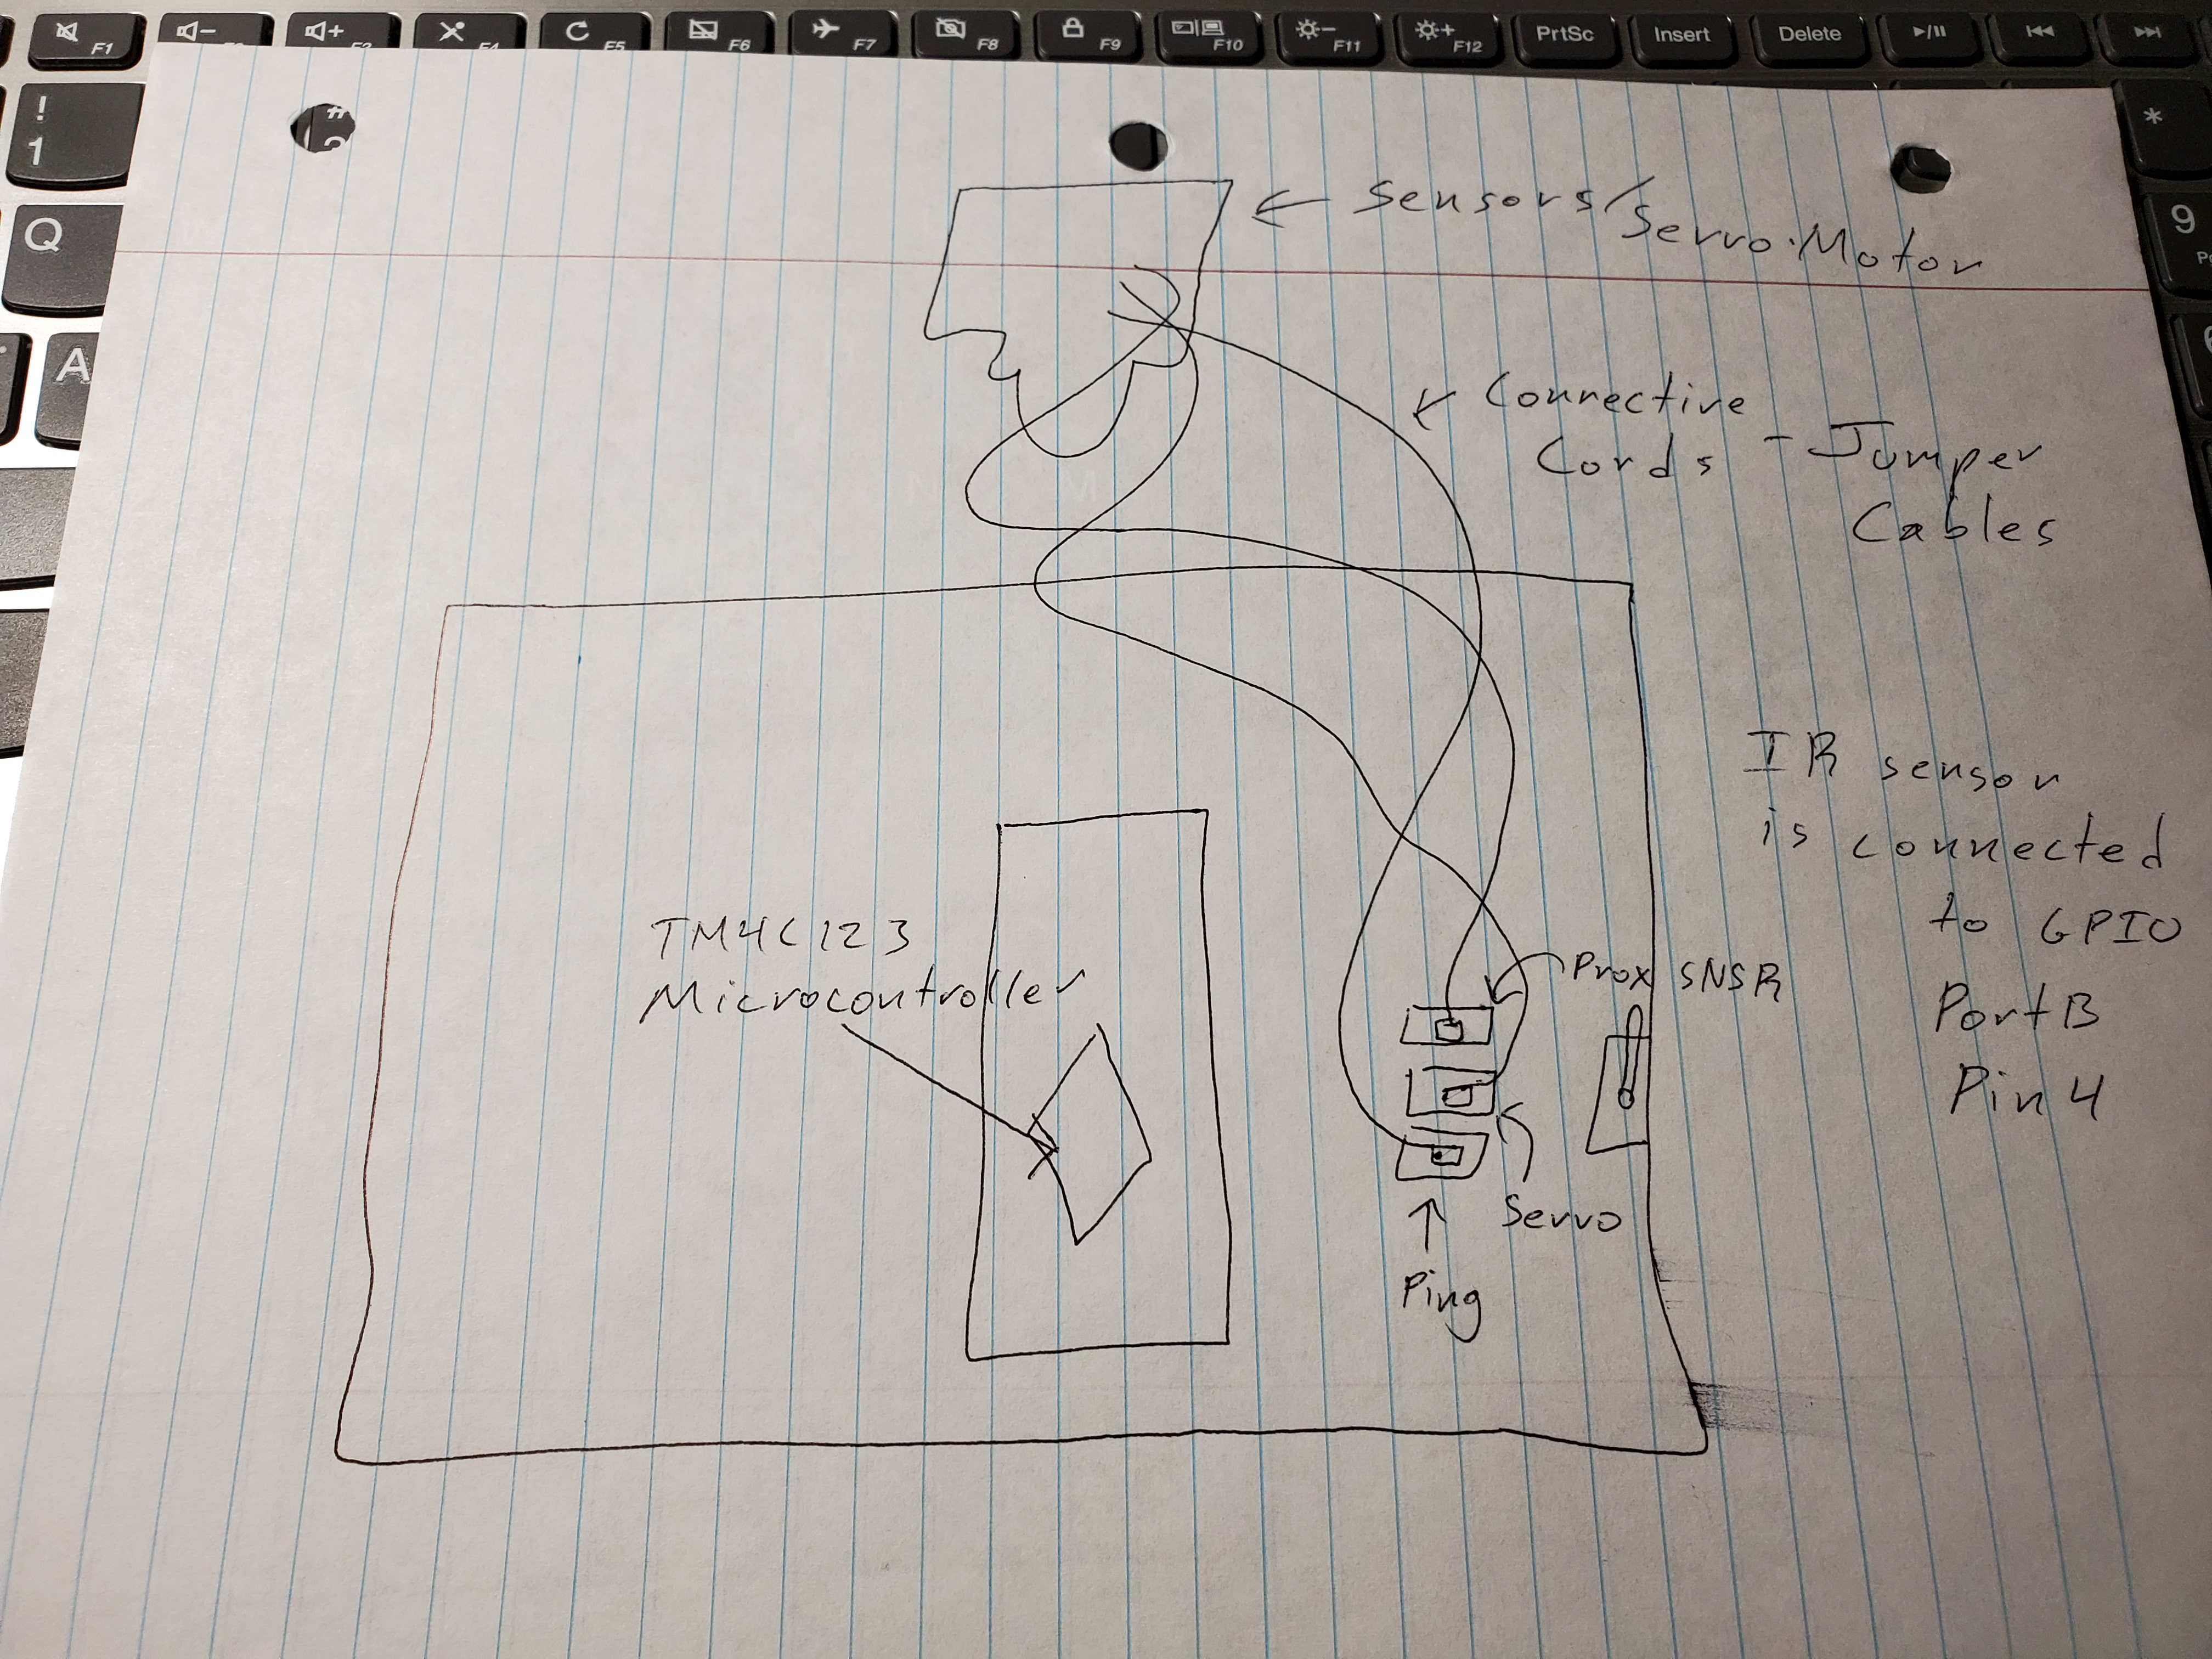 F1
F2
F3
F4
F5
F6
F7
F8
F9
F10
F11
F12
PrtSc
Insert
Delete
!
1
#
*
Q
9
A
6
Sensors/
Servo Motor
Connective
Cords - Jumper
Cables
IR sensor
is connected
to GPIO
Port B
Pin 4
TM4C123
Microcontroller
Prox SNSR
Servo
Ping